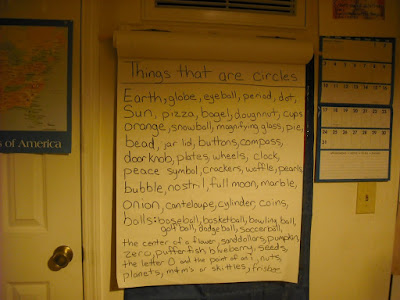 Things that are circles
Earth, globe, eyeball, period, dot,
Sun, pizza, bagel, doughnut, cups
orange, snowball, magnifying glass, pie,
bead, jar lid, buttons, compass,
doorknob, plates, wheels, clock,
peace symbol, crackers, waffle, pearls
bubble, nostril, full moon, marble,
onion, canteloupe, cylinder, coins,
balls: baseball, basketball, bowling ball,
golf ball, dodgeball, soccerball,
the center of a flower, sanddollars, pumpkin,
zero, pufferfish, blueberry, seeds,
the letter O and the point of an i, nuts,
planets, m+m's or skittles, frisbee.
s of America